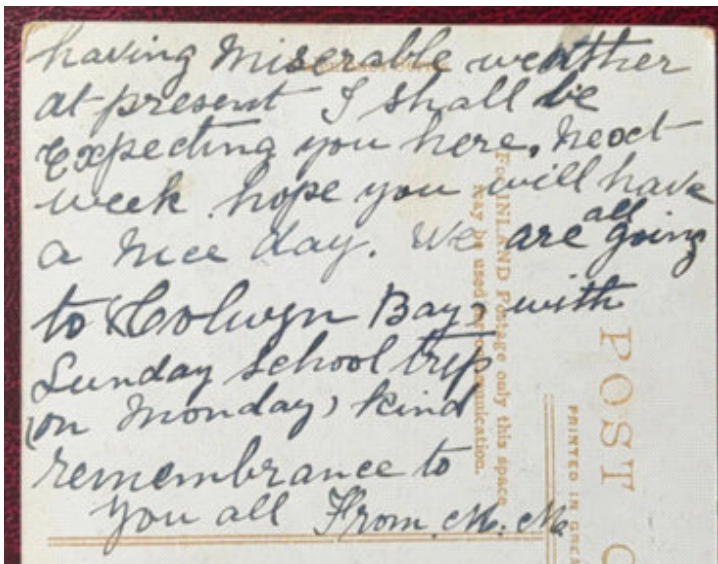 having miserable weather
at present I shall be
Expecting you here, next
week. hope you will have
all
a nice day. We are going
to (Colwyn Bay) with
Sunday school trip
(on Monday) kind
remembrance to
you all From. M. M.
For INLAND Postage only this space
may be used for communication.
POST C
PRINTED IN GREA